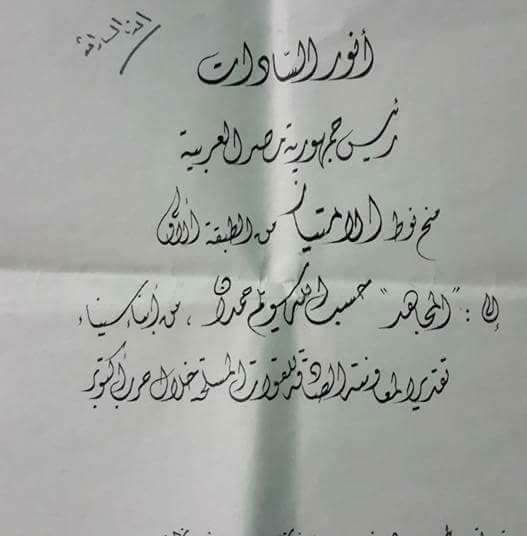 أنور السادات
رئيس جمهورية مصر العربية
منح نوط الامتياز من الطبقة الأولى
إلى : "المجاهد" حسب الله سويلم حمدان ، من أبناء سيناء
تقديرا لمعاونته الصادقة للقوات المسلحة خلال حرب أكتوبر